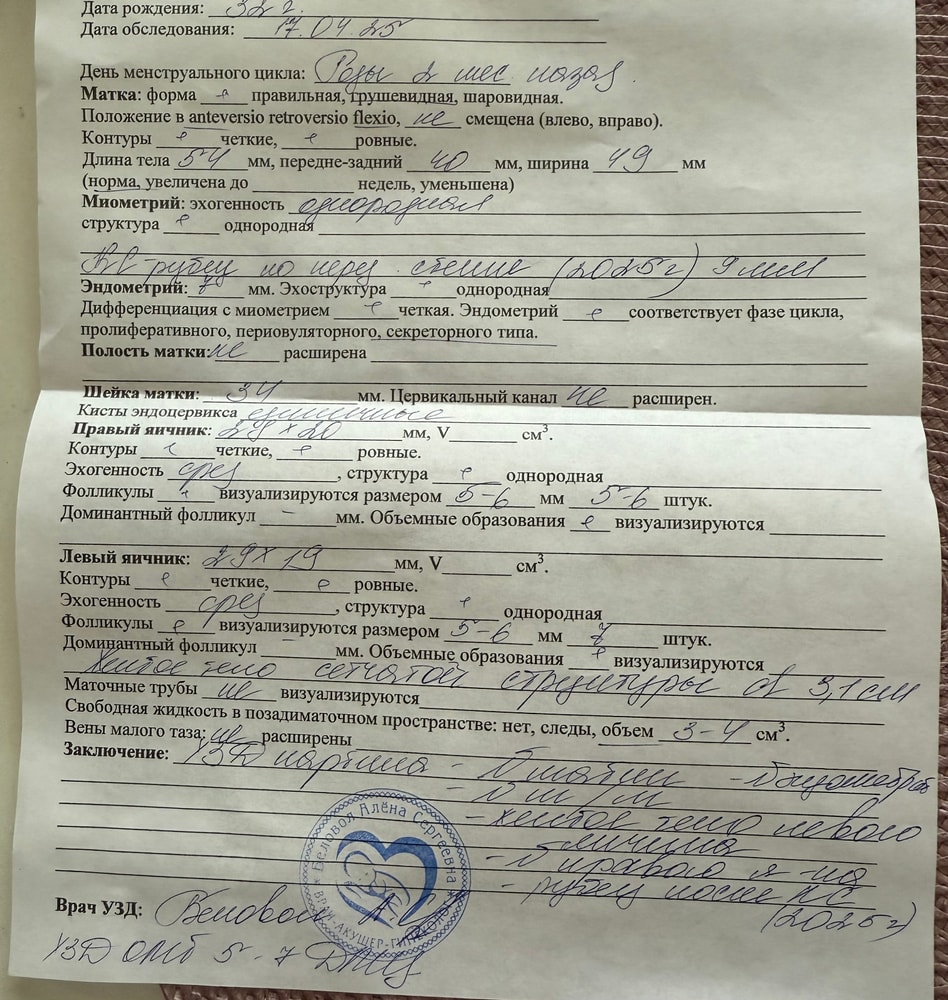 Дата рождения: 32 г.
Дата обследования: 17.04.25
День менструального цикла: Роды 2 мес назад.
Матка: форма + правильная, грушевидная, шаровидная.
Положение в anteversio retroversio flexio, не смещена (влево, вправо).
Контуры + четкие, + ровные.
Длина тела 54 мм, передне-задний 40 мм, ширина 49 мм
(норма, увеличена до недель, уменьшена)
Миометрий: эхогенность однородная
структура + однородная
КС-рубец по перед. стенке (2025г) 9 мм
Эндометрий: 7 мм. Эхоструктура + однородная
Дифференциация с миометрием + четкая. Эндометрий + соответствует фазе цикла,
пролиферативного, периовуляторного, секреторного типа.
Полость матки: не расширена
Шейка матки: 34 мм. Цервикальный канал не расширен.
Кисты эндоцервикса единичные
Правый яичник: 29 х 20 мм, V см³.
Контуры + четкие, + ровные.
Эхогенность сред, структура + однородная
Фолликулы + визуализируются размером 5-6 мм 5-6 штук.
Доминантный фолликул – мм. Объемные образования + визуализируются
Левый яичник: 29 х 19 мм, V см³.
Контуры + четкие, + ровные.
Эхогенность сред, структура + однородная
Фолликулы + визуализируются размером 5-6 мм 7 штук.
Доминантный фолликул – мм. Объемные образования + визуализируются
Желтое тело сетчатой структуры d 3,1 см
Маточные трубы не визуализируются
Свободная жидкость в позадиматочном пространстве: нет, следы, объем 3-4 см³.
Вены малого таза: не расширены
Заключение: УЗД картина - N матки - N эндометрия
- N ш/м
- желтое тело левого
яичника
- N правого я-ка
- рубец после КС
(2025г)
Беловол Алёна Сергеевна
ВРАЧ-АКУШЕР-ГИНЕКОЛОГ
Врач УЗД: Беловол А.
УЗД ОМТ 5-7 ДМЦ